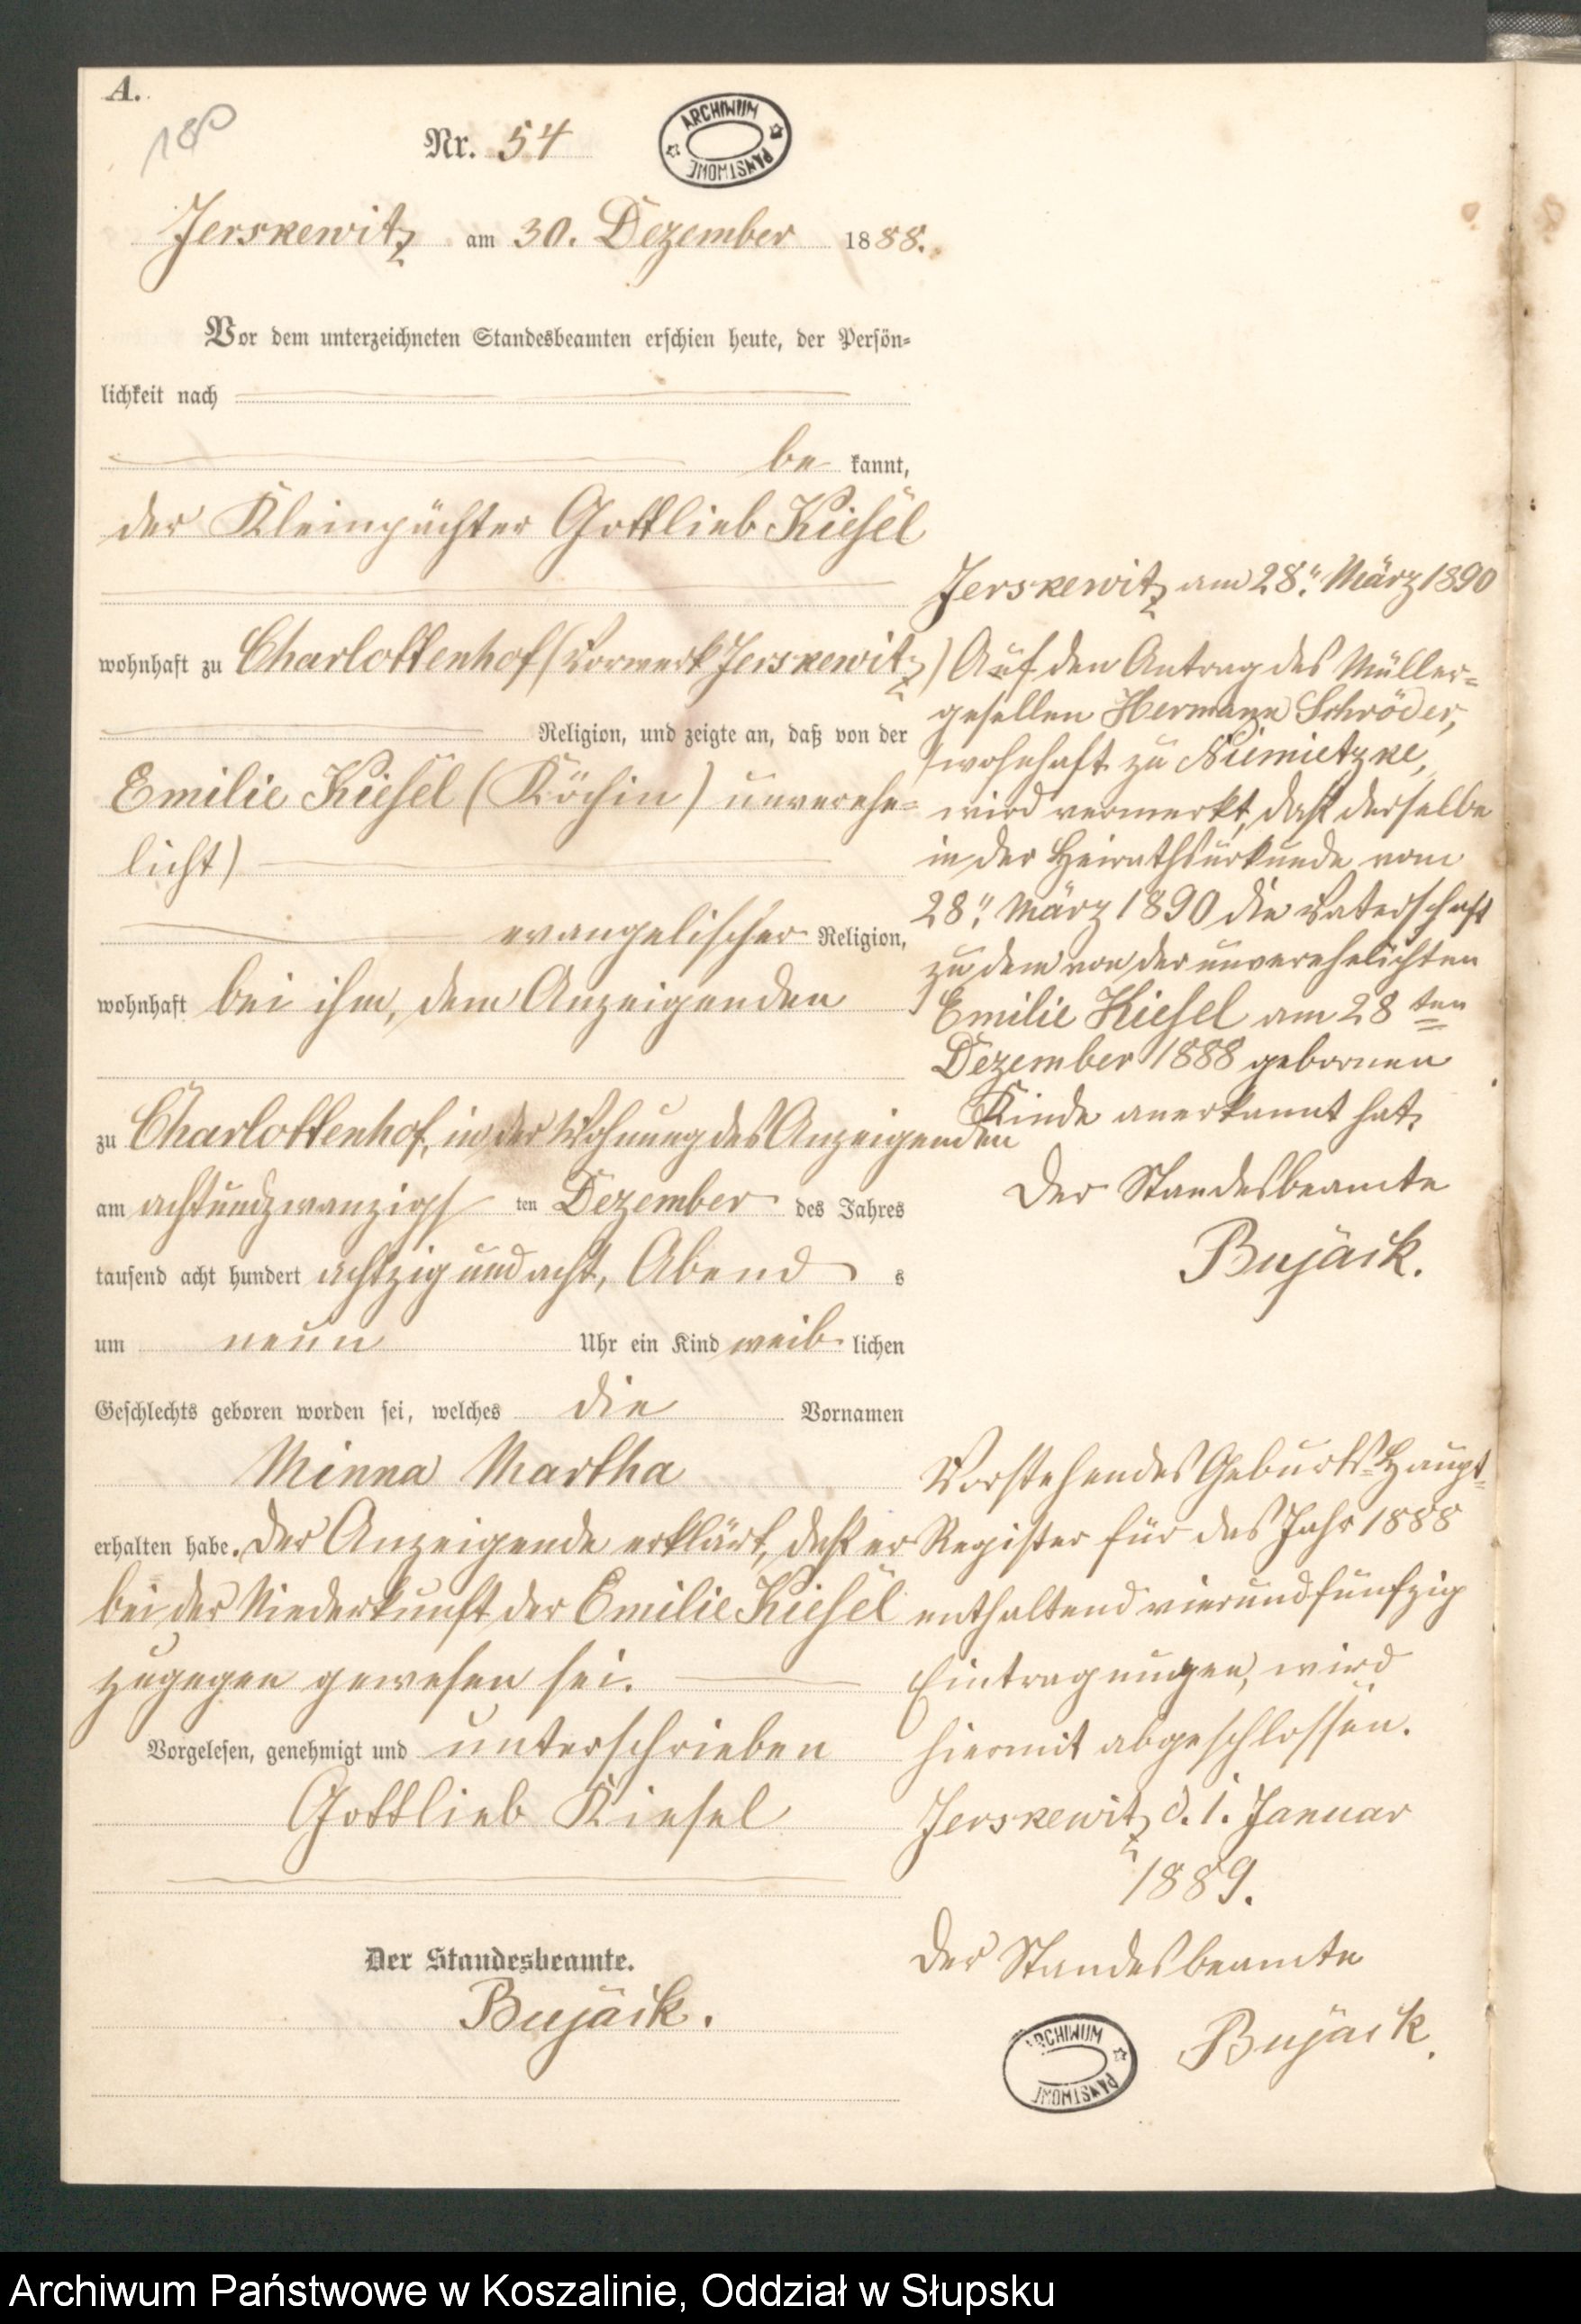 A.
180
Nr. 54
ARCHIWUM PAŃSTWOWE
Jerskewitz am 30. Dezember 1888.
Vor dem unterzeichneten Standesbeamten erschien heute, der Persön-
lichkeit nach
be kannt,
der Kleinpächter Gottlieb Kiesel
wohnhaft zu Charlottenhof (Vorwerk Jerskewitz)
Religion, und zeigte an, daß von der
Emilie Kiesel (Köchin) unverehe-
licht)
evangelischer Religion,
wohnhaft bei ihm, dem Anzeigenden
zu Charlottenhof, in der Wohnung des Anzeigenden
am achtundzwanzigs ten Dezember des Jahres
tausend acht hundert achtzig und acht, Abend s
um neun Uhr ein Kind weib lichen
Geschlechts geboren worden sei, welches die Vornamen
Minna Martha
erhalten habe. Der Anzeigende erklärt, daß er
bei der Niederkunft der Emilie Kiesel
zugegen gewesen sei.
Vorgelesen, genehmigt und unterschrieben
Gottlieb Kiesel
Der Standesbeamte.
Bujäck.
Jerskewitz am 28ten März 1890
Auf den Antrag des Müller-
gesellen Hermann Schröder,
wohnhaft zu Niemietzke,
wird vermerkt, daß derselbe
in der Heirathsurkunde vom
28ten März 1890 die Vaterschaft
zu dem von der unverehelichten
Emilie Kiesel am 28ten
Dezember 1888 gebornen
Kinde anerkannt hat.
Der Standesbeamte
Bujäck.
Vorstehendes Geburts-Haupt-
Register für das Jahr 1888
enthaltend vierundfünfzig
Eintragungen, wird
hiermit abgeschlossen.
Jerskewitz d. 1. Januar
1889.
Der Standesbeamte
Bujäck.
ARCHIWUM PAŃSTWOWE
Archiwum Państwowe w Koszalinie, Oddział w Słupsku